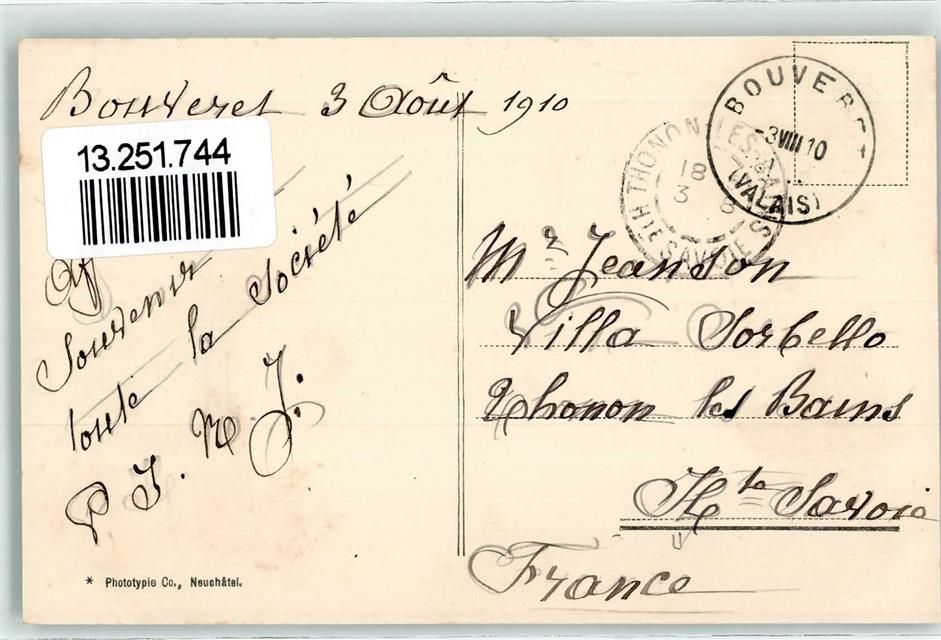 Bouveret 3 Août 1910
13.251.744
Souvenir
toute la Société
P. J. M. J.
* Phototypie Co., Neuchâtel.
BOUVERET
-3 VIII 10
(VALAIS)
THONON-LES-BAINS
18
3 8
HTE SAVOIE
Mr Jeanson
Villa Sorbello
Thonon les Bains
Hte Savoie
France